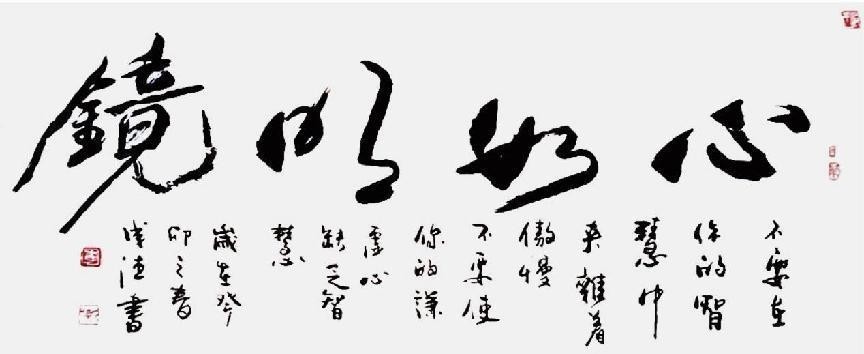 心如明镜
不要在
你的智
慧中
夹雜着
傲慢
不要使
你的謙
虚心
缺乏智
慧
歲在癸
卯之春
成德書